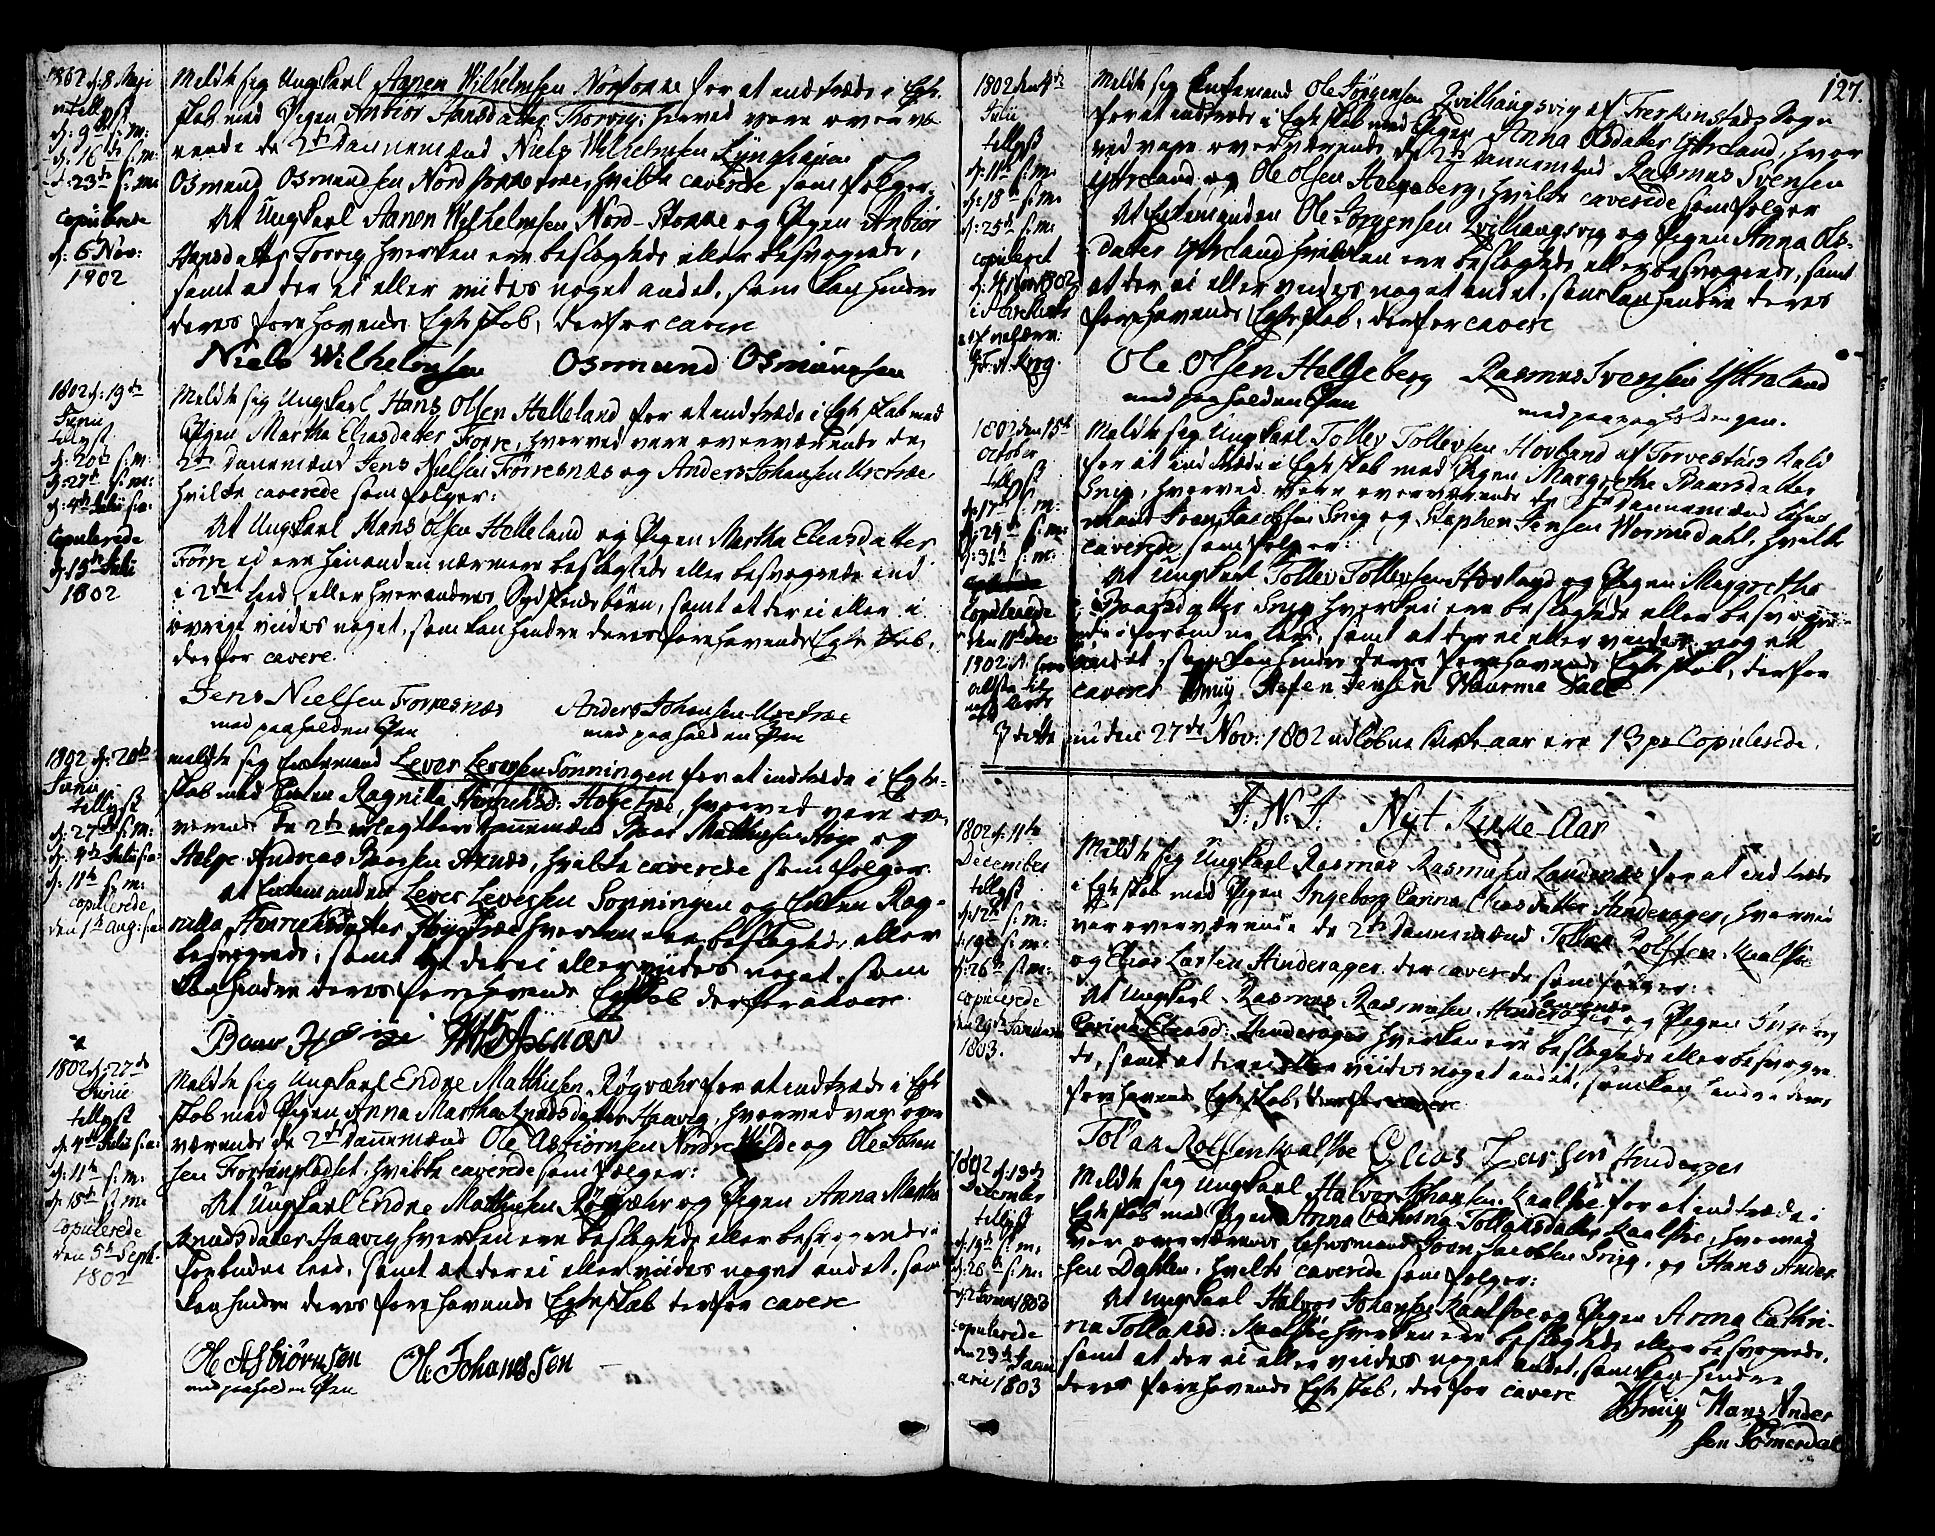 1802 d: 8 Maji
tillyst
d: 9de s: m:
d: 16de s: m:
d: 23de s: m:
Copulerede
d: 6 Nov:
1802
Meldte sig Ungkarl Aanen Wilhelmsen Norstonne for at indtræde i Egte-
skab med Pigen Anbior Hansdatter Thorvig; herved vare overvæ-
rende de 2de Dannemænd Niels Wilhelmsen Lÿnghaim og
Osmund Osmundsen Nord hvilke caverede som følger:
At Ungkarl Aanen Wilhelmsen Nord-Stonne og Pigen Anbior
Hansdatter Torvig hverken ere beslægtede eller besvogrede,
samt at der ei eller viides noget andet, som kan hindre
deres forehavende Egteskab, derfor cavere
Niels Wilhelmsen Osmund Osmundsen
1802 d: 19de
Junii
tillyst
d: 20de s: m:
d: 27de s: m:
d: 4de Julii s: a:
Copulerede
d: 15de Juli
1802
Meldte sig Ungkarl Hans Olsen Helleland for at indtræde i Egteskab med
Pigen Martha Eliasdatter Førre, hvorved vare overværende de
2de Dannemænd Jens Nielsen Førresnæs og Anders Johansen Uretræe
hvilke caverede som følger:
At Ungkarl Hans Olsen Helleland og Pigen Martha Eliasdatter
Førre ei ere hinanden nærmere beslægtede eller besvogrede end
i 2det leed, eller hverandres Sydskendebørn, samt at der ei eller i
øvrigt viides noget, som kan hindre deres forehavende Egteskab,
derfor cavere.
Jens Nielsen Forresnæs Anders Johansen Uretræe
med paaholden Pen med paaholden Pen
1802 d: 20de
Junii
tillyst
d: 27de s: m:
d: 4de Julii s: a:
d: 11te s: m:
Copulerede
den 1te Aug: s: a:
meldte sig Enkemand Lever Leversen Sønningen for at indtræde i Egte-
skab med Enken Ragnilla Henrichsd: hvorved vare over-
værende de 2de Dannemænd Baar Matthiesen og
Helge Andreas Baarsen Aznæs, hvilke caverede som følger.
at Enkemanden Lever Leversen Sønningen og Enken Rag-
nilla Henrichsdatter hverken ere beslægtede eller
besvogrede, samt at der ei eller viides noget, som
kan hindre deres forehavende Egteskab derfor cavere.
1802 d: 27de
Junii
tillyst
d: 4de Julii s: a:
d: 11te s: m:
d: 18de s: m:
Copulerede
den 5te Sept:
1802
Meldte sig Ungkarl Endre Matthiesen Røgvæhr for at indtræde i Egte-
skab med Pigen Anna Martha Knudsdatter Haavig, hvorved var over-
værende de 2de Dannemænd Ole Asbiørnsen og Ole Johan-
sen hvilke caverede som følger:
At Ungkarl Endre Matthiesen Røgvæhr og Pigen Anna Martha
Knudsdatter Haavig hverken ere beslægtede eller besvogrede i
forbudne leed, samt at der ei eller viides noget andet, som
kan hindre deres forehavende Egteskab derfor cavere
Ole Asbiørnsen Ole Johanssen
med paaholden Pen
127.
1802 den 4de
Julii
tillyst
d: 11te s: m:
d: 18de s: m:
d: 25de s: m:
Copuleret
d: 4 Nov 1802
Meldte sig Enkemand Ole Jørgensen Zvilhaugsvig af Ferkinstads Sogn
for at indtræde i Egteskab med Pigen Anna Olsdatter Ytreland, hvor-
ved vare overværende de 2de Dannemænd Rasmus Svensen
Ytreland og Ole Olsen Helgeberg, hvilke caverede som følger
At Enkemanden Ole Jørgensen Zvilhaugsvig og Pigen Anna Ols-
datter Ytreland hverken ere beslægtede eller besvogrede, samt
at der ei eller viides noget andet, som kan hindre deres
forehavende Egteskab, derfor cavere
Ole Olsen Helgeberg Rasmus Svensen Yttreland
med paaholden Pen med paaholden pen.
1802 den 15de
October
tillyst
d: 17de s: m:
d: 24de s: m:
d: 31te s: m:
Copulerede
den 11te Dec:
1802
Meldte sig Ungkarl Tollev Tollevsen Hovland af Torvestad Kald
for at indtræde i Egteskab med Pigen Margretha Baarsdatter
Snig, hvorved vare overværende de 2de Dannemænd Lehns-
mand Sven Jacobsen Snig og Stephen Jensen Wormedahl, hvilke
caverede som følger:
At Ungkarl Tollev Tollevsen Hovland og Pigen Margretha
Baarsdatter Snig hverken ere beslægtede eller besvogre-
de i forbudne leed, samt at der ei eller viides noget
andet, som kan hindre deres forehavende Egteskab, derfor
cavere Snuig Stefen Jensen Waurme Dall
I dette inden 27de Nov: 1802 udløbne Kirke aar ere 13 pr Copulerede.
I. N. J. Nyt Kirke-Aar
1802 d: 11te
December
tillyst
d: 12te s: m:
d: 19de s: m:
d: 26de s: m:
Copulerede
den 29de Januari
1803.
Meldte sig Ungkarl Rasmus Rasmusen Landenæs for at indtræde
i Egteskab med Pigen Ingeborg Carina Eliasdatter Hinderager, hvorved
vare overværende de 2de Dannemænd Tollak Rolfsen Kualøe
og Elias Larsen Hinderager der caverede som følger:
At Ungkarl Rasmus Rasmusen Landenæs og Pigen Ingeborg
Carina Eliasd: Hinderager hverken ere beslægtede eller besvogre-
de, samt at der ei eller viides noget andet, som kan hindre deres
forehavende Egteskab, derfor cavere
Tollak Rolfsen Kualøe Elias Larsen Hinderager
1802 d: 13de
December
tillyst
d: 19de s: m:
d: 26de s: m:
d: 2 Janua 1803
Copulerede
den 29de Janu-
arii 1803
Meldte sig Ungkarl Halvor Johansen Kaaløe for at indtræde i
Egteskab med Pigen Anna Cathrina Tollaksdatter Kaaløe, hvorved
var overværende Lehnsmand Sven Jacobsen Snig, og Hans Ander-
sen Dahlen, hvilke caverede som følger:
At Ungkarl Halvor Johansen Kaaløe og Pigen Anna Cathri-
na Tollaksd: Kaaløe hverken ere beslægtede eller besvogrede,
samt at der ei eller viides noget andet, som kan hindre
deres forehavende Egteskab, derfor cavere
Snuig Hans Ander
sen